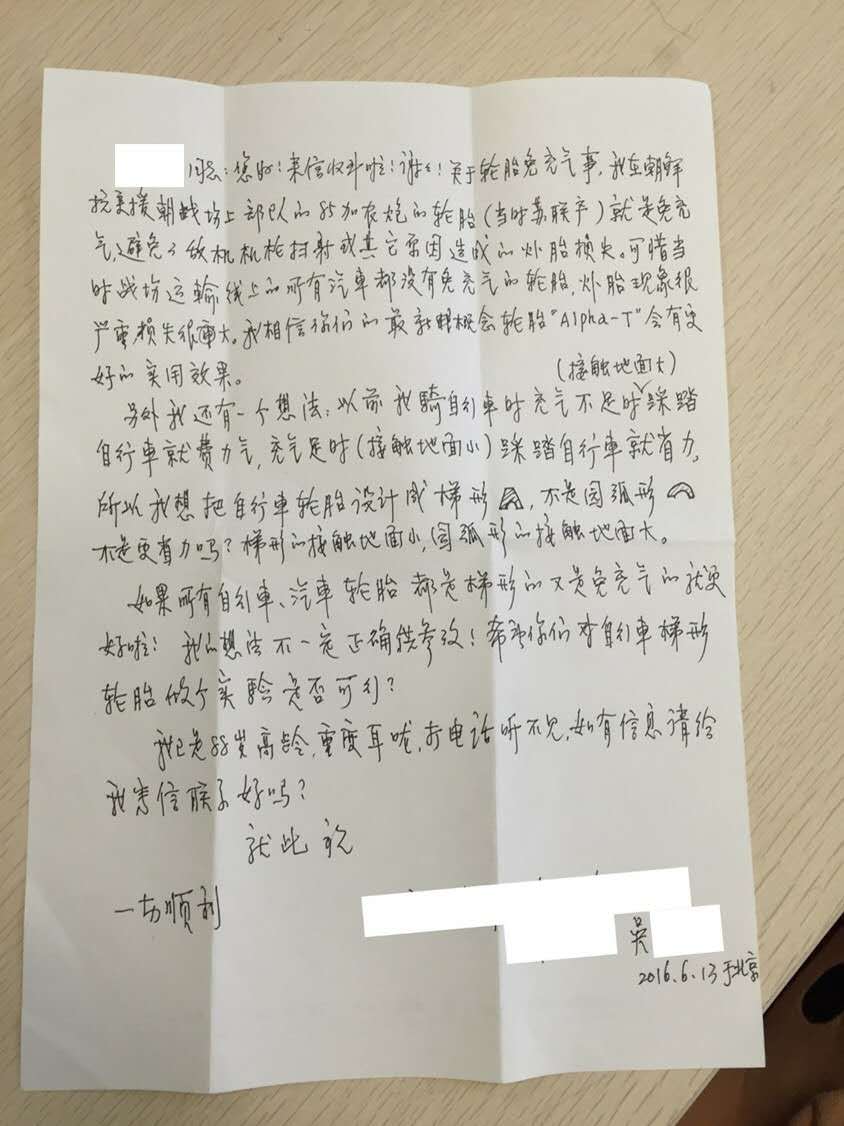 同志：您好！来信收到啦！谢谢！关于轮胎免充气事，我在朝鲜
抗美援朝战场上部队的85加农炮的轮胎（当时苏联产）就是免充
气，避免了敌机机枪扫射或其它原因造成的炸胎损失。可惜当
时战场运输线上的所有汽車都没有免充气的轮胎，炸胎现象很
严重损失很重大。我相信你们的最新概念轮胎"Alpha-T"会有更
好的实用效果。
（接触地面大）
另外我还有一个想法：以前我騎自行車时充气不足时踩踏
自行車就费力气，充气足时（接触地面小）踩踏自行車就省力。
所以我想把自行車轮胎设计成梯形，不是圆弧形
不是更省力吗？梯形的接触地面小，圆弧形的接触地面大。
如果所有自行車、汽車轮胎都是梯形的又是免充气的就更
好啦！我的想法不一定正确供参考！希望你们对自行車梯形
轮胎做个实验是否可行？
我已是88岁高龄，重度耳聋，打电话听不见，如有信息请给
我来信联系好吗？
就此祝
一切顺利
吴
2016.6.13于北京